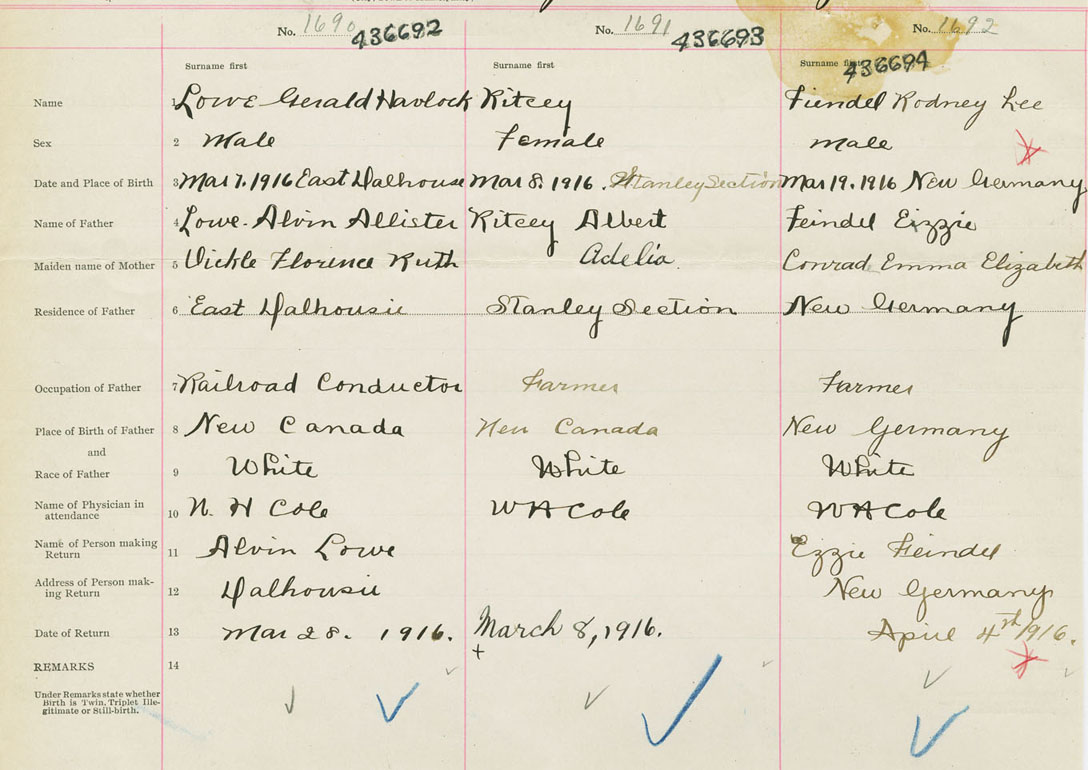 No. 1690 436692 No. 1691 436693 No. 1692
Surname first Surname first Surname first 436694
Name 1 Lowe Gerald Havlock Ritcey Fiendel Rodney Lee
Sex 2 Male Female Male
Date and Place of Birth 3 Mar 7. 1916 East Dalhouse Mar 8. 1916. Stanley Section Mar 19. 1916 New Germany
Name of Father 4 Lowe. Alvin Allister Ritcey Albert Feindel Eizzie
Maiden name of Mother 5 Vickle Florence Ruth Adelia. Conrad, Emma Elizabeth
Residence of Father 6 East Dalhousie Stanley Section New Germany
Occupation of Father 7 Railroad Conductor Farmer Farmer
Place of Birth of Father 8 New Canada New Canada New Germany
and
Race of Father 9 White White White
Name of Physician in
attendance 10 N. H Cole W A Cole W A Cole
Name of Person making
Return 11 Alvin Lowe Ezzie Feindel
Address of Person mak-
ing Return 12 Dalhousie New Germany
Date of Return 13 Mar 28. 1916. March 8, 1916. April 4th 1916.
REMARKS 14
Under Remarks state whether
Birth is Twin. Triplet Ille-
gitimate or Still-birth.